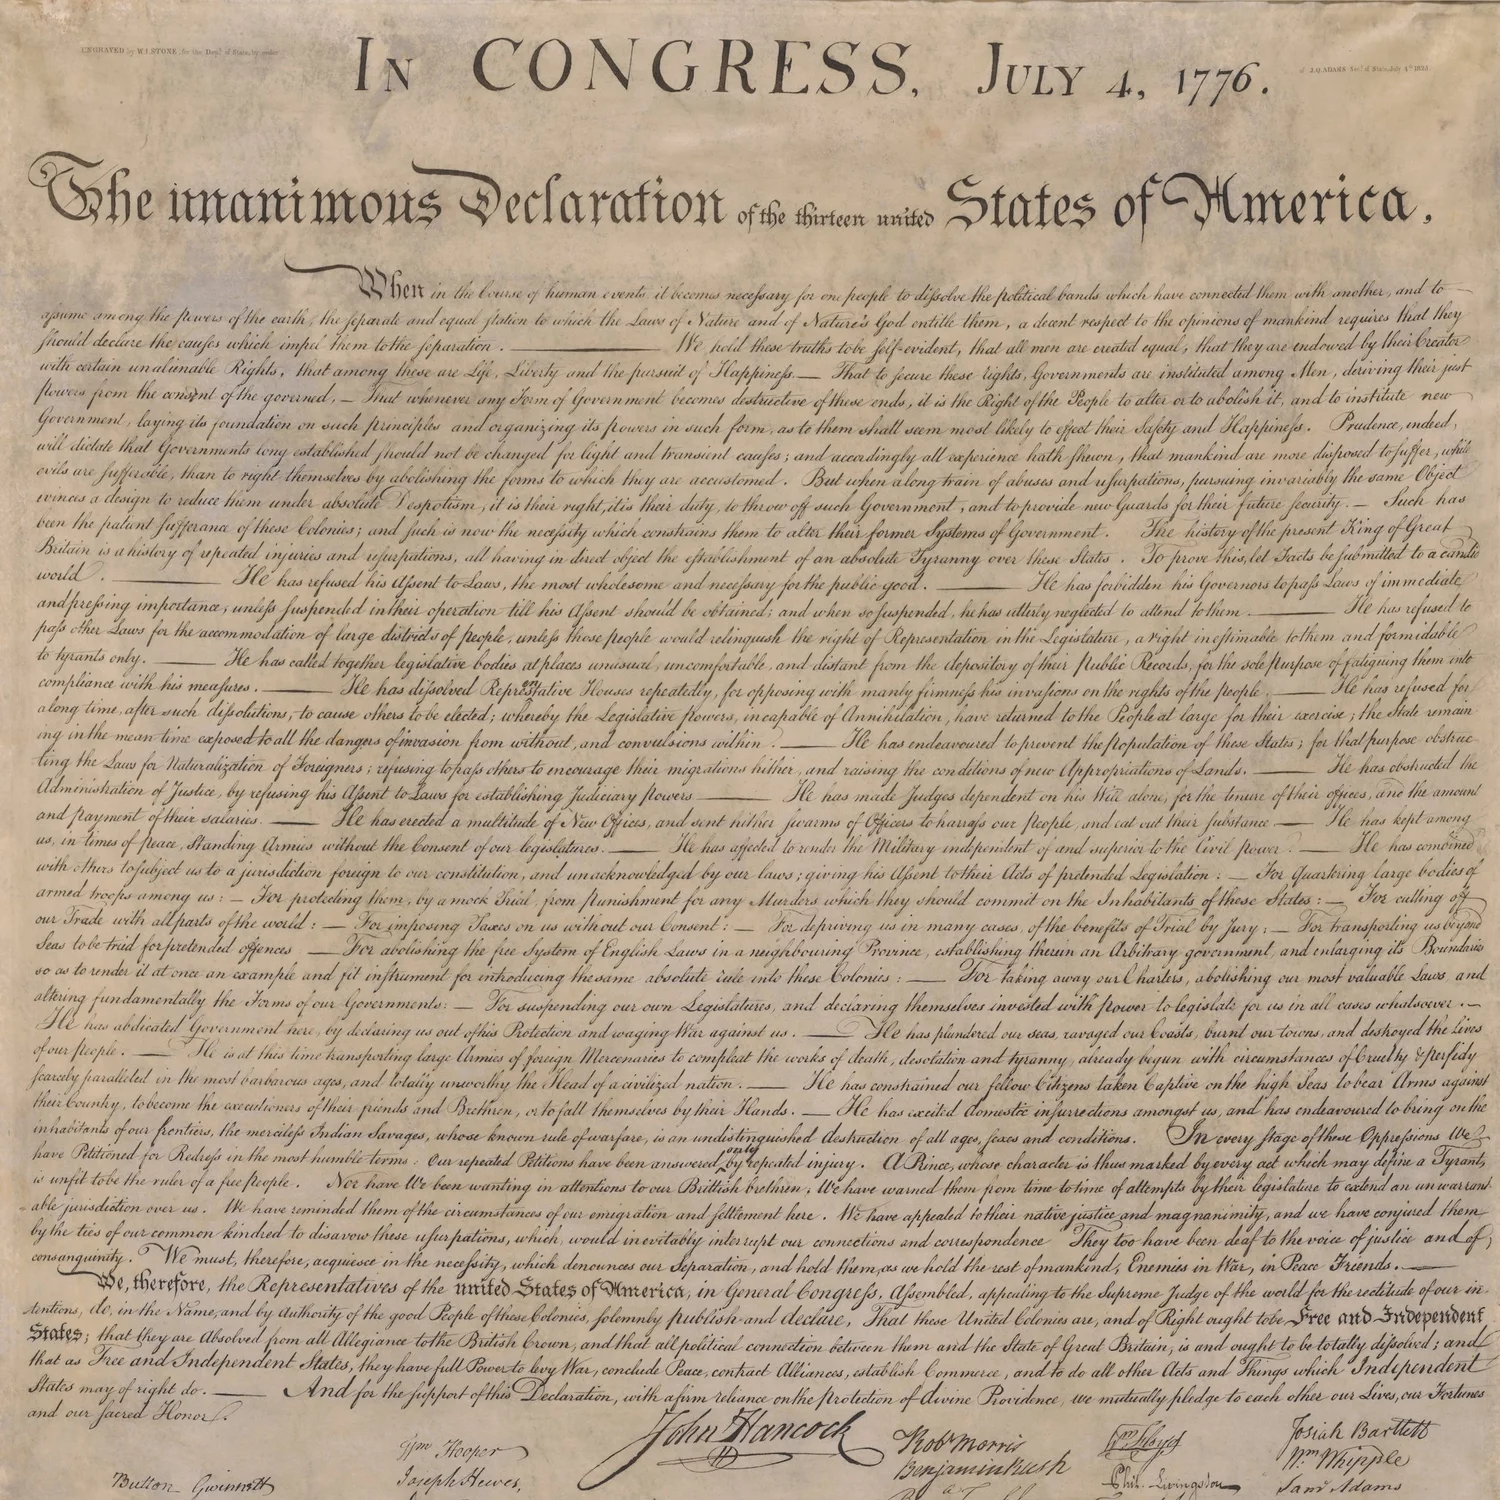 ENGRAVED by W.I.STONE, for the Dept. of State, by order
of J.Q.ADAMS Sect. of State, July 4th 1823.
In CONGRESS, July 4, 1776.
The unanimous Declaration of the thirteen united States of America,
When in the Course of human events it becomes necessary for one people to dissolve the political bands which have connected them with another, and to
assume among the Powers of the earth, the separate and equal station to which the Laws of Nature and of Nature's God entitle them, a decent respect to the opinions of mankind requires that they
should declare the causes which impel them to the separation. — We hold these truths to be self-evident, that all men are created equal, that they are endowed by their Creator
with certain unalienable Rights, that among these are Life, Liberty and the pursuit of Happiness. — That to secure these rights, Governments are instituted among Men, deriving their just
Powers from the consent of the governed, — That whenever any Form of Government becomes destructive of these ends, it is the Right of the People to alter or to abolish it, and to institute new
Government, laying its foundation on such principles and organizing its Powers in such form, as to them shall seem most likely to effect their Safety and Happiness. Prudence, indeed,
will dictate that Governments long established should not be changed for light and transient causes; and accordingly all experience hath shewn, that mankind are more disposed to suffer, while
evils are sufferable, than to right themselves by abolishing the forms to which they are accustomed. But when a long train of abuses and usurpations, pursuing invariably the same Object
evinces a design to reduce them under absolute Despotism, it is their right, it is their duty, to throw off such Government, and to provide new Guards for their future security. — Such has
been the patient sufferance of these Colonies; and such is now the necessity which constrains them to alter their former Systems of Government. The history of the present King of Great
Britain is a history of repeated injuries and usurpations, all having in direct object the establishment of an absolute Tyranny over these States. To prove this, let Facts be submitted to a candid
world. — He has refused his Assent to Laws, the most wholesome and necessary for the public good. — He has forbidden his Governors to pass Laws of immediate
and pressing importance, unless suspended in their operation till his Assent should be obtained; and when so suspended, he has utterly neglected to attend to them. — He has refused to
pass other Laws for the accommodation of large districts of people, unless those people would relinquish the right of Representation in the Legislature, a right inestimable to them and formidable
to tyrants only. — He has called together legislative bodies at places unusual, uncomfortable, and distant from the depository of their Public Records, for the sole Purpose of fatiguing them into
compliance with his measures. — He has dissolved Representative Houses repeatedly, for opposing with manly firmness his invasions on the rights of the people. — He has refused for
a long time, after such dissolutions, to cause others to be elected; whereby the Legislative Powers, incapable of Annihilation, have returned to the People at large for their exercise; the State remain
ing in the mean time exposed to all the dangers of invasion from without, and convulsions within. — He has endeavoured to prevent the Population of these States; for that purpose obstruc
ting the Laws for Naturalization of Foreigners; refusing to pass others to encourage their migrations hither, and raising the conditions of new Appropriations of Lands. — He has obstructed the
Administration of Justice, by refusing his Assent to Laws for establishing Judiciary Powers — He has made Judges dependent on his Will alone, for the tenure of their offices, and the amount
and payment of their salaries. — He has erected a multitude of New Offices, and sent hither swarms of Officers to harrass our People, and eat out their substance — He has kept among
us, in times of peace, Standing Armies without the Consent of our legislatures. — He has affected to render the Military independent of and superior to the Civil Power. — He has combined
with others to subject us to a jurisdiction foreign to our constitution, and unacknowledged by our laws; giving his Assent to their Acts of pretended Legislation: — For quartering large bodies of
armed troops among us: — For protecting them, by a mock Trial, from Punishment for any Murders which they should commit on the Inhabitants of these States: — For cutting off
our Trade with all parts of the world: — For imposing Taxes on us without our Consent: — For depriving us in many cases, of the benefits of Trial by Jury; — For transporting us beyond
Seas to be tried for pretended offences — For abolishing the free System of English Laws in a neighbouring Province, establishing therein an Arbitrary government, and enlarging its Boundaries
so as to render it at once an example and fit instrument for introducing the same absolute rule into these Colonies: — For taking away our Charters, abolishing our most valuable Laws, and
altering fundamentally the Forms of our Governments: — For suspending our own Legislatures, and declaring themselves invested with Power to legislate for us in all cases whatsoever. —
He has abdicated Government here, by declaring us out of his Protection and waging War against us. — He has plundered our seas, ravaged our Coasts, burnt our towns, and destroyed the Lives
of our People. — He is at this time transporting large Armies of foreign Mercenaries to compleat the works of death, desolation and tyranny, already begun with circumstances of Cruelty & perfidy
scarcely paralleled in the most barbarous ages, and totally unworthy the Head of a civilized nation. — He has constrained our fellow Citizens taken Captive on the high Seas to bear Arms against
their Country, to become the executioners of their friends and Brethren, or to fall themselves by their Hands. — He has excited domestic insurrections amongst us, and has endeavoured to bring on the
inhabitants of our frontiers, the merciless Indian Savages, whose known rule of warfare, is an undistinguished destruction of all ages, sexes and conditions. In every stage of these Oppressions We
have Petitioned for Redress in the most humble terms: Our repeated Petitions have been answered only by repeated injury. A Prince, whose character is thus marked by every act which may define a Tyrant,
is unfit to be the ruler of a free People. Nor have We been wanting in attentions to our Brittish brethren. We have warned them from time to time of attempts by their legislature to extend an unwarrant
able jurisdiction over us. We have reminded them of the circumstances of our emigration and settlement here. We have appealed to their native justice and magnanimity, and we have conjured them
by the ties of our common kindred to disavow these usurpations, which, would inevitably interrupt our connections and correspondence They too have been deaf to the voice of justice and of
consanguinity. We must, therefore, acquiesce in the necessity, which denounces our Separation, and hold them, as we hold the rest of mankind, Enemies in War, in Peace Friends. —
We, therefore, the Representatives of the united States of America, in General Congress, Assembled, appealing to the Supreme Judge of the world for the rectitude of our in-
tentions, do, in the Name, and by Authority of the good People of these Colonies, solemnly publish and declare, That these United Colonies are, and of Right ought to be Free and Independent
States; that they are Absolved from all Allegiance to the British Crown, and that all political connection between them and the State of Great Britain, is and ought to be totally dissolved; and
that as Free and Independent States, they have full Power to levy War, conclude Peace, contract Alliances, establish Commerce, and to do all other Acts and Things which Independent
States may of right do. — And for the support of this Declaration, with a firm reliance on the protection of divine Providence, we mutually pledge to each other our Lives, our Fortunes
and our sacred Honor.
John Hancock
Button Gwinnett
Wm Hooper
Joseph Hewes,
Robt Morris
Benjamin Rush
Wm Floyd
Phil. Livingston
Josiah Bartlett
Wm Whipple
Saml Adams